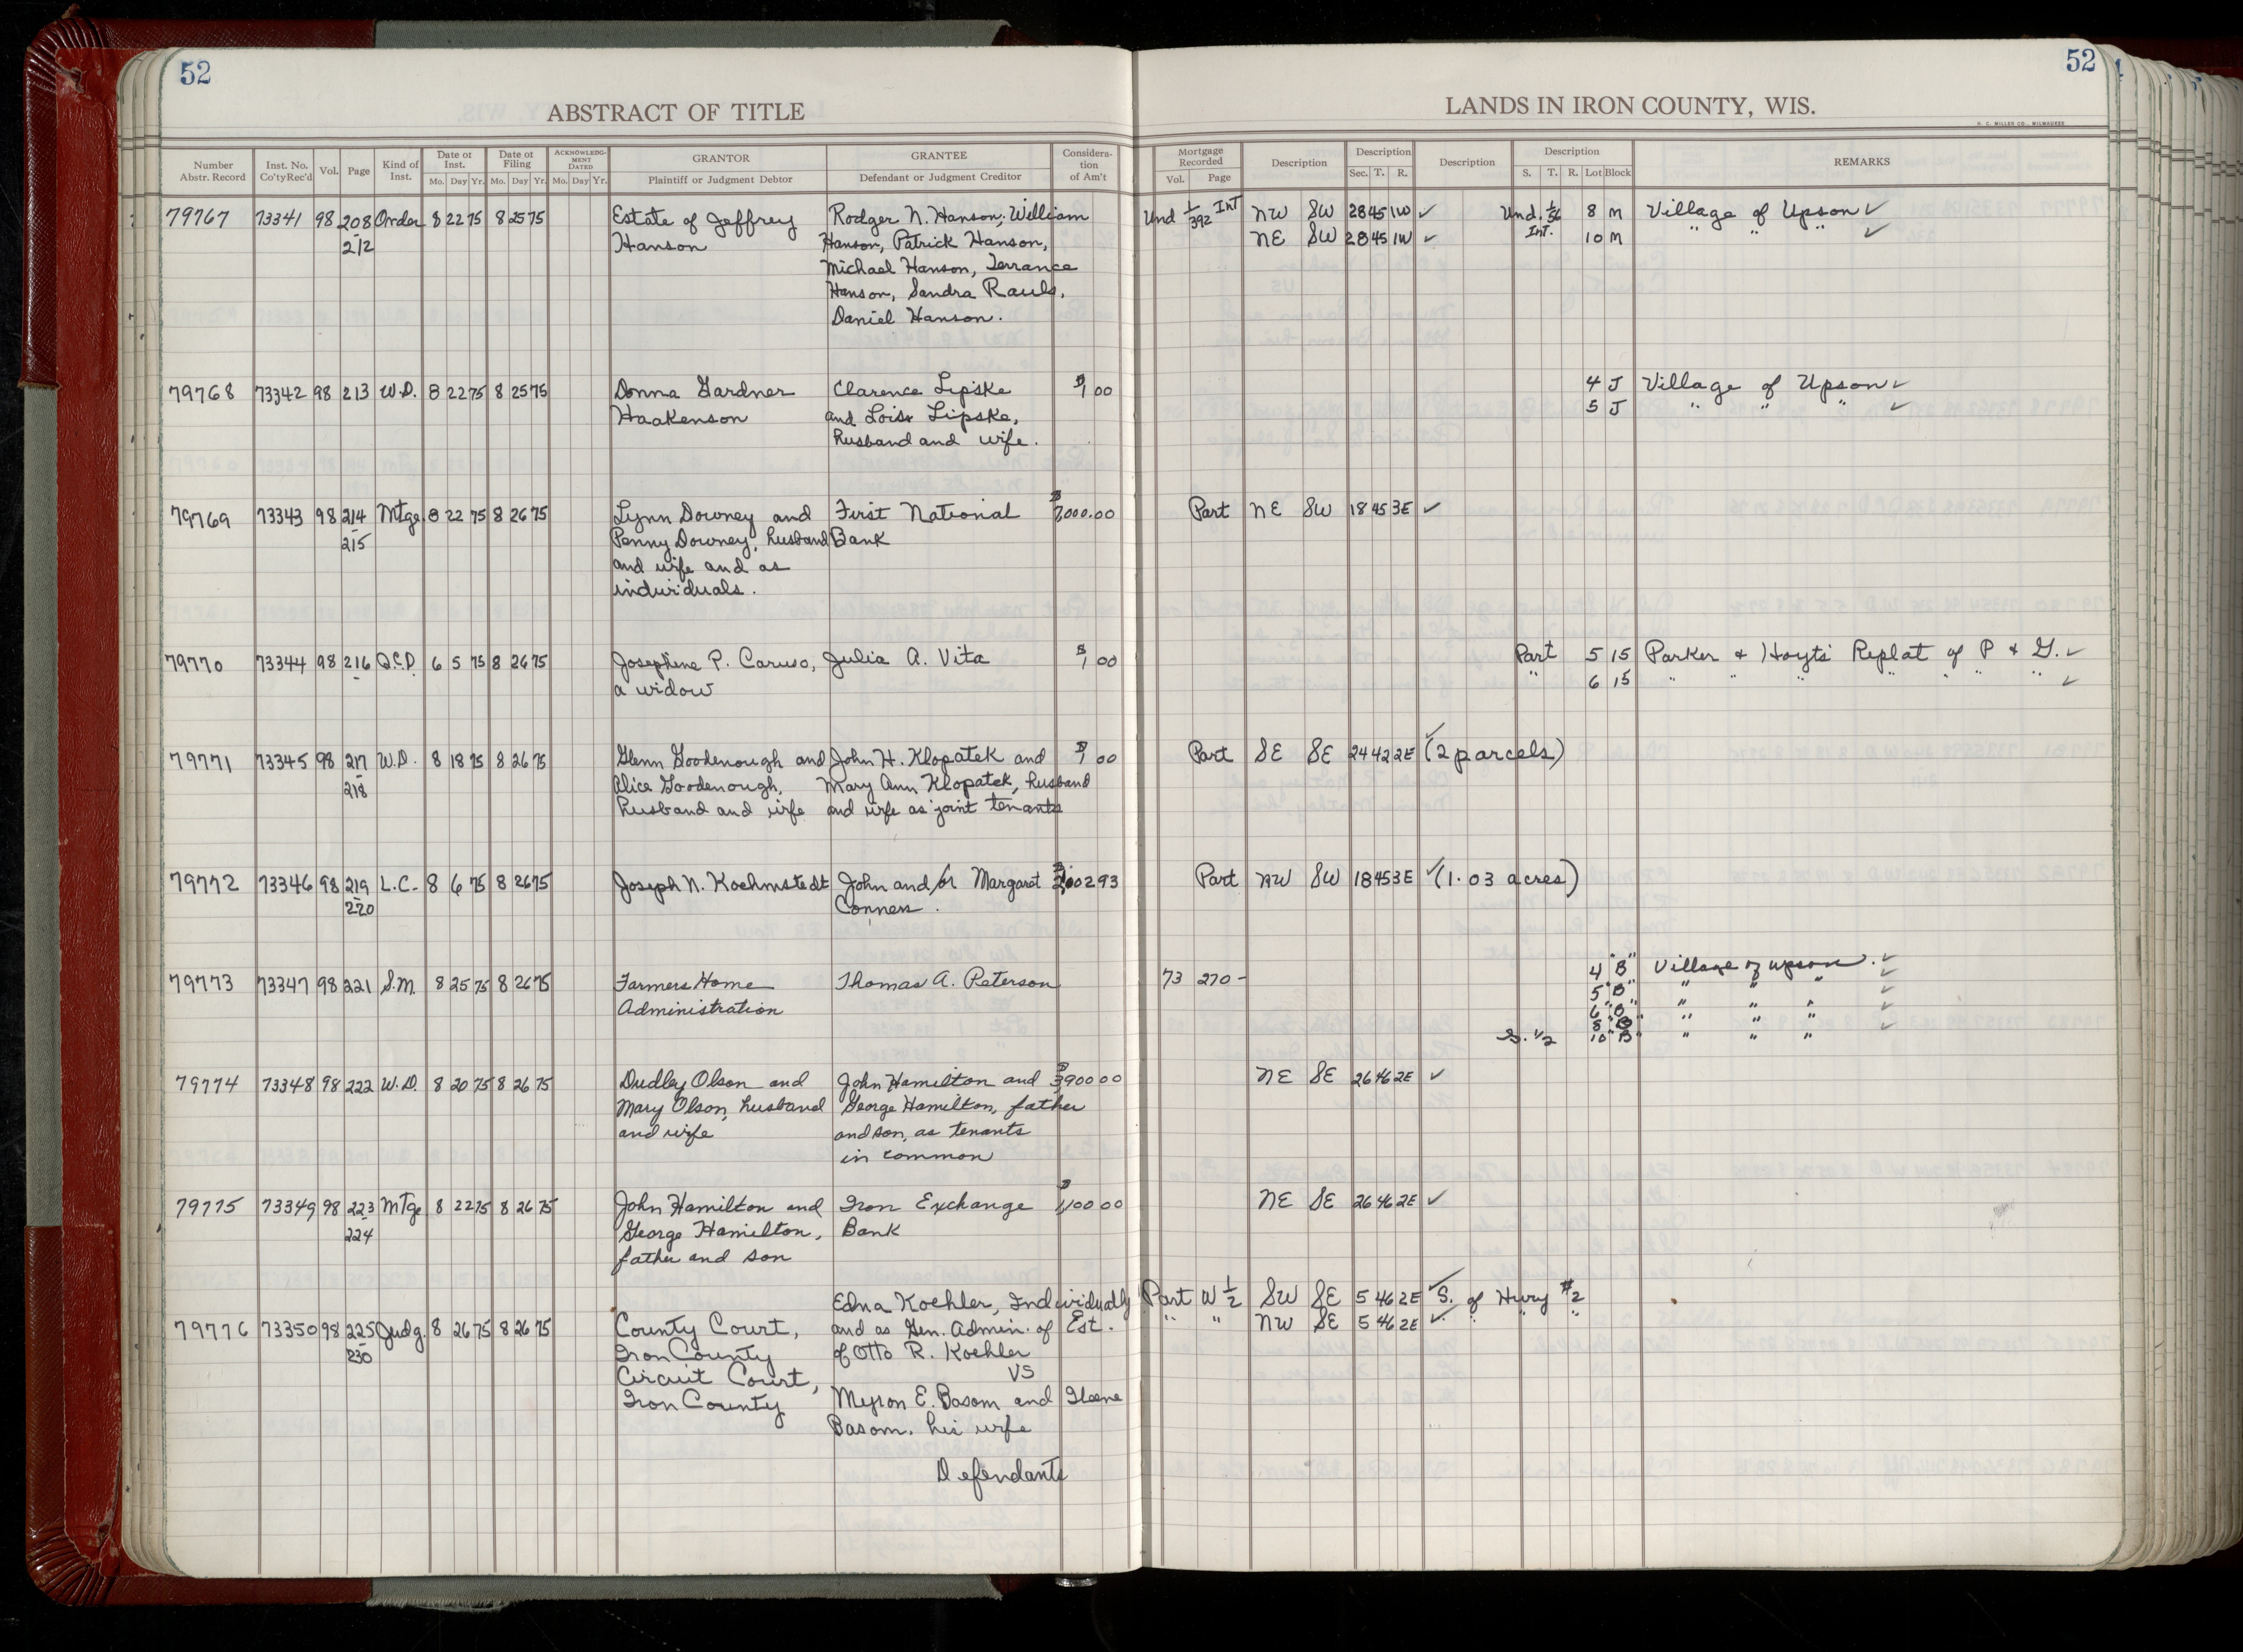 52
52
ABSTRACT OF TITLE
LANDS IN IRON COUNTY, WIS.
H. C. MILLER CO., MILWAUKEE
Number Abstr. Record Inst. No. Co'ty Rec'd Vol. Page Kind of Inst. Date of Inst. Mo. Day Yr. Date of Filing Mo. Day Yr. ACKNOWLEDGMENT DATED Mo. Day Yr. GRANTOR Plaintiff or Judgment Debtor GRANTEE Defendant or Judgment Creditor Consideration of Am't Mortgage Recorded Vol. Page Description Description Sec. T. R. Description Description S. T. R. Lot Block REMARKS
79767 73341 98 208 Order 8 22 75 8 25 75 Estate of Jeffrey Rodger N. Hanson; William Und 1/392 Int NW SW 28 45 1W ✓ Und. 1/56 8 M Village of Upson ✓
212 Hanson Hanson, Patrick Hanson, NE SW 28 45 1W ✓ Int. 10 M " " " ✓
Michael Hanson, Terrance
Hanson, Sandra Rauls,
Daniel Hanson.
79768 73342 98 213 W.D. 8 22 75 8 25 75 Donna Gardner Clarence Lipske $1 00 4 J Village of Upson ✓
Haakenson and Lois Lipske, 5 J " " " ✓
husband and wife.
79769 73343 98 214 Mtge. 8 22 75 8 26 75 Lynn Downey and First National $7,000.00 Part NE SW 18 45 3E ✓
215 Penny Downey, husband Bank
and wife and as
individuals.
79770 73344 98 216 Q.C.D. 6 5 75 8 26 75 Josephine P. Caruso, Julia A. Vita $1 00 Part 5 15 Parker & Hoyts' Replat of P & G. ✓
- a widow " 6 15 " " " " " " " ✓
79771 73345 98 217 W.D. 8 18 75 8 26 75 Glenn Goodenough and John H. Klopatek and $1 00 Part SE SE 24 42 2E ✓ (2 parcels)
218 Alice Goodenough, Mary Ann Klopatek, husband
husband and wife and wife as joint tenants
79772 73346 98 219 L.C. 8 6 75 8 26 75 Joseph N. Koehmstedt John and/or Margaret $2,002 93 Part NW SW 18 45 3E ✓ (1.03 acres)
220 Conners.
79773 73347 98 221 S.M. 8 25 75 8 26 75 Farmers Home Thomas A. Peterson 73 270 - 4 "B" Village of Upson. ✓
Administration 5 "B" " " " ✓
6 "B" " " " ✓
8 "B" " " " ✓
S. 1/2 10 "B" " " " ✓
79774 73348 98 222 W.D. 8 20 75 8 26 75 Dudley Olson and John Hamilton and $3900 00 NE SE 26 46 2E ✓
Mary Olson, husband George Hamilton, father
and wife and son, as tenants
in common
79775 73349 98 223 Mtge 8 22 75 8 26 75 John Hamilton and Iron Exchange $1,100 00 NE SE 26 46 2E ✓
224 George Hamilton, Bank
father and son
Edna Koehler, Individually Part W 1/2 SW SE 5 46 2E ✓ S. of Hwy #2
79776 73350 98 225 Judg. 8 26 75 8 26 75 County Court, and as Gen. Admin. of Est. " " NW SE 5 46 2E ✓ " " " "
230 Iron County of Otto R. Koehler
Circuit Court, VS
Iron County Myron E. Basom and Ilene
Basom, his wife
Defendants